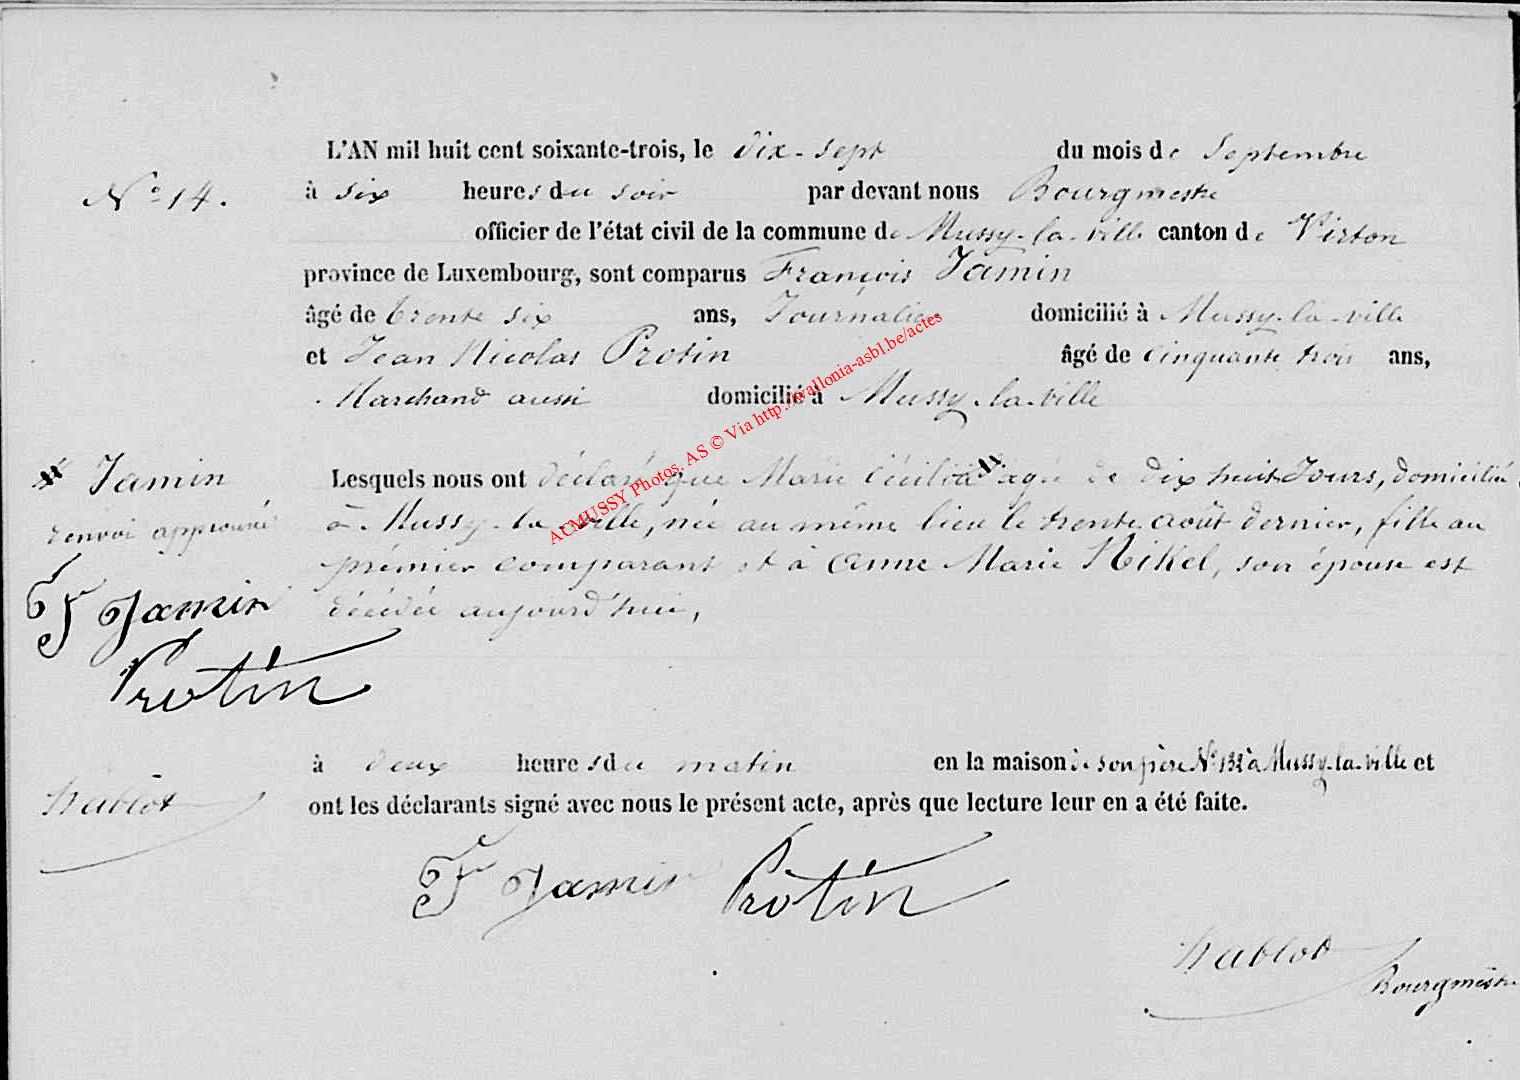 L'AN mil huit cent soixante-trois, le dix-sept du mois de Septembre
N° 14. à six heures du soir par devant nous Bourgmestre
officier de l'état civil de la commune de Mussy-la-ville canton de Virton
province de Luxembourg, sont comparus François Jamin
âgé de trente six ans, Journalier domicilié à Mussy-la-ville
et Jean Nicolas Protin âgé de cinquante trois ans,
Marchand aussi domicilié à Mussy-la-ville
Jamin
renvoi approuvé
F Jamin
Protin
Hablot
Lesquels nous ont déclaré que Marie Cécilia agée de dix huit Jours, domiciliée
à Mussy-la-ville, née au même lieu le trente août dernier, fille au
prémier comparant et à Anne Marie Nikel, son épouse est
décédée aujourd'hui,
à deux heures du matin en la maison de son père N° 132 à Mussy-la-ville et
ont les déclarants signé avec nous le présent acte, après que lecture leur en a été faite.
F Jamin Protin
Hablot
Bourgmestre
ACMUSSY Photos. AS © Via http://wallonia-asbl.be/actes